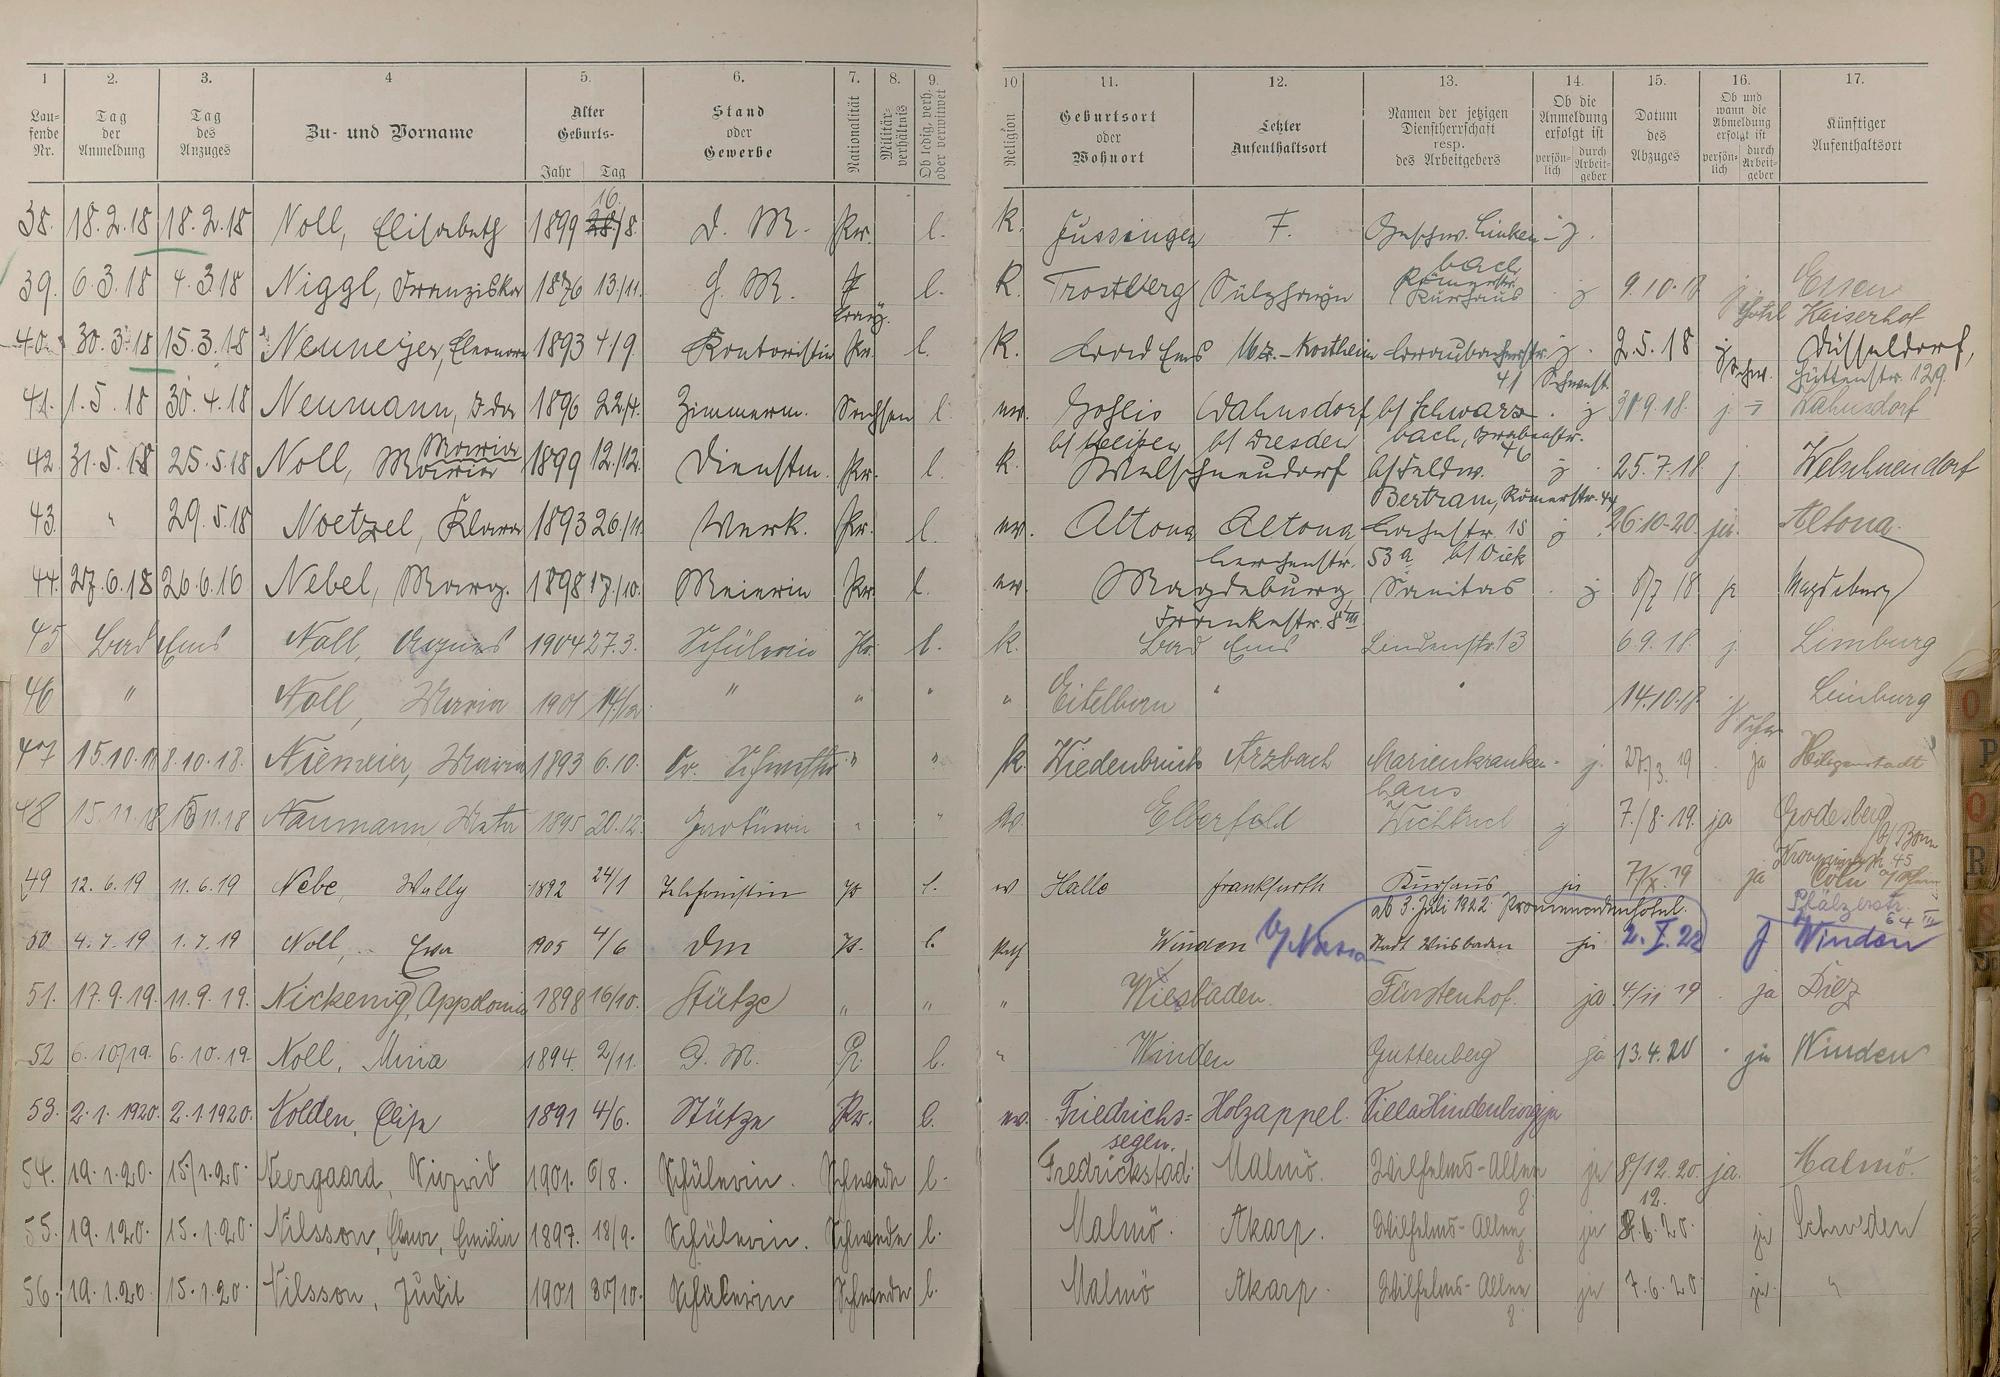 1 2. 3. 4 5. 6. 7. 8. 9. 10 11. 12. 13. 14. 15. 16. 17.
Lau-fende Nr. Tag der Anmeldung Tag des Anzuges Zu- und Vorname Alter Geburts- Jahr Tag Stand oder Gewerbe Nationalität Militär-verhältnis Ob ledig, verh. oder verwitwet Religion Geburtsort oder Wohnort Letzter Aufenthaltsort Namen der jetzigen Dienstherrschaft resp. des Arbeitgebers Ob die Anmeldung erfolgt ist persön-lich durch Arbeit-geber Datum des Abzuges Ob und wann die Abmeldung erfolgt ist persön-lich durch Arbeit-geber Künftiger Aufenthaltsort
38. 18.2.18 18.2.18 Noll, Elisabeth 1899 16. 28./8. D. M. Pr. l. K. Fussingen F. Geschw. Linken- j.
bach
39. 6.3.18 4.3.18 Niggl, Franziska 1876 13/11. H. M. l. K. Trostberg Sülzhayn Römerstr. Kurhaus j 9.10.18 j. Essen
Hotel Kaiserhof
40. 30.3.18 15.3.18 Neumeyer, Eleonore 1893 4/9 Kontoristin Pr. l. K. Bad Ems Mz.-Kostheim Braubacherstr. j. 2.5.18 j Düsseldorf,
41 Schw. Hüttenstr. 129.
41. 1.5.18 30.4.18 Neumann, Ida 1896 22/4. Zimmerm. Sachsen l. ev. Gohlis Wahnsdorf b/ Schwarz j 30.9.18. j. Wahnsdorf
b/ Dresden bach, Grabenstr. 46
42. 31.5.18 25.5.18 Noll, Maria Maria 1899 12./12. Dienstm. Pr. l. K. Welschneudorf b/ Feldw. j 25.7.18 j. Welschneudorf
Bertram, Römerstr. 44
43. " 29.5.18 Noetzel, Klara 1893 26/11. Werk. Pr. l. ev. Altona Altona 15 j 26.10.20 ja. Altona.
Lerchenstr. 53a b/ Diek
44. 27.6.18 26.6.16 Nebel, Marg. 1898 17./10. Meierin Pr. l. ev. Magdeburg Sanitas j 8/7 18 ja Magdeburg
Frankestr. 8 III
45 Bad Ems Noll, Agnes 1904 27.3. Schülerin Pr. l. k. Bad Ems Lindenstr. 13 6.9.18. j. Limburg
46 " Noll, Maria 1901 14/12. " " " " Eitelborn " " 14.10.18. Limburg
47 15.10.18 8.10.18. Niemeier, Maria 1893 6.10. Kr. Schwester " " k. Wiedenbrück Arzbach Marienkranken- j. 3. 19 ja Heiligenstadt
haus
48 15.11.18 15.11.18 Naumann, Meta 1895 20.12. " " ev. Elberfeld j 7./8.19. ja Godesberg
b/ Bonn
45
49 12.6.19 11.6.19 Nebe, Wally 1892 24/1 Telefonistin Pr l. ev Halle Frankfurth Kurhaus ja 7/X.19 ja Cöln a/ Rhein
ab 3. Juli 1922 Promenadenhotel. Pfälzerstr. 64 III
50 4.7.19 1.7.19 Noll, Eva 1905 4/6 Dm Pr. l. Kath Winden b/ Nassau Stadt Wiesbaden ja 2.X.22 j Winden
51. 17.9.19. 11.9.19. Nickenig, Appolonia 1898 16/10. Stütze " " " Wiesbaden. Fürstenhof. ja 4/11 19 ja Diez
52 6.10/19. 6.10.19. Noll, Mina 1894. 2/11. D. M. Pr. l. " Winden Guttenberg ja 13.4.20 ja Winden
53. 2.1.1920. 2.1.1920. Nolden, Elise 1891 4/6. Stütze Pr. l. ev. Friedrichs= Holzappel. Villa Hindenburg ja
segen.
54. 19.1.20. 15/1.20. Neergaard, Sigrid 1901. 6/8. Schülerin. Schwede l. Fredrickstad. Malmö. Wilhelms-Allee 8 ja 8/12.20. ja. Malmö.
55. 19.1.20. 15.1.20. Nilsson, Emilia 1897. 18/9. Schülerin. Schwede l. Malmö. Akarp. Wilhelms-Allee 8. ja 12. 8.6.20. ja Schweden
56. 19.1.20. 15.1.20. Nilsson, Judit 1901 30/10. Schülerin Schwede l. Malmö Akarp. Wilhelms-Allee 8. ja 7.6.20. ja. "
O
P
Q
R
S